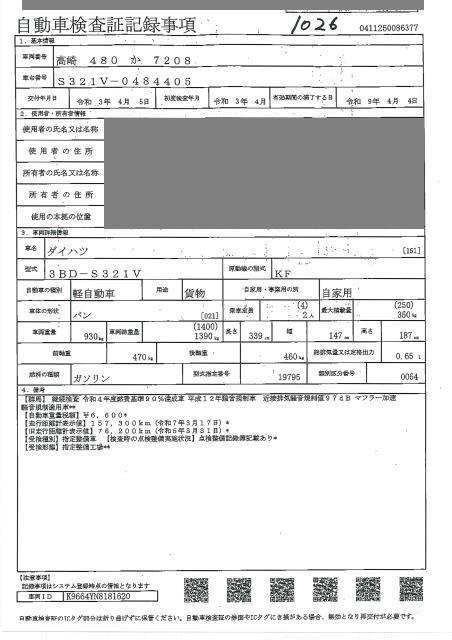 自動車検査証記録事項
1026
0411250086377
1．基本情報
車両番号 高崎 480 か 7208
車台番号 S321V-0484405
交付年月日 令和 3年 4月 5日 初度検査年月 令和 3年 4月 有効期間の満了する日 令和 9年 4月 4日
2．使用者・所有者情報
使用者の氏名又は名称
使用者の住所
所有者の氏名又は名称
所有者の住所
使用の本拠の位置
3．車両詳細情報
車名 ダイハツ [151]
型式 3BD-S321V 原動機の型式 KF
自動車の種別 軽自動車 用途 貨物 自家用・事業用の別 自家用
車体の形状 バン [021] 乗車定員 (4) 2人 最大積載量 (250) 350kg
車両重量 930kg 車両総重量 (1400) 1390kg 長さ 339cm 幅 147cm 高さ 187cm
前軸重 470kg 後軸重 460kg 総排気量又は定格出力 0.65 L
燃料の種類 ガソリン 型式指定番号 19795 類別区分番号 0054
4．備考
【群馬】 継続検査 令和4年度燃費基準90%達成車 平成12年騒音規制車 近接排気騒音規制値97dB マフラー加速
騒音規制適用車**
【自動車重量税額】¥6,600*
【走行距離計表示値】157,300km（令和7年3月17日）*
【旧走行距離計表示値】76,200km（令和5年3月31日）*
【受検種別】指定整備車 【検査時の点検整備実施状況】点検整備記録簿記載あり*
【受検形態】指定整備工場**
【注意事項】
記録事項はシステム登録時点の情報となります
車両ID K9664YN8181620
自動車検査証のICタグ部分は折り曲げずに保管ください。自動車検査証の券面やICタグにき損がある場合、無効となり再交付が必要です。